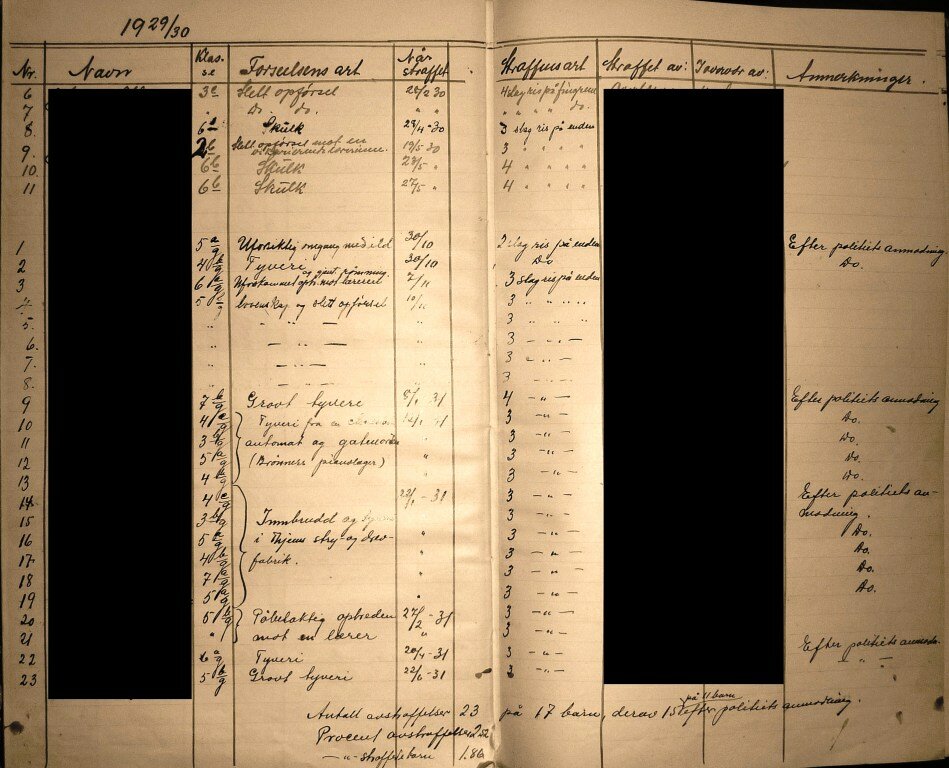 1929/30
Nr. Navn Klasse Forseelsens art Når straffet Straffens art Straffet av: Iovervær av: Anmerkninger.
6 3 a Slett opførsel 20/2 30 4 slag ris på fingrene
7 " Do. do. " " " " " " do.
8 6 a Skulk 23/4 - 30 3 slag ris på enden
9. 2 b Slett opførsel mot en vikarierende lærerinne. 19/5 30 3 " " " "
10. 6 b Skulk 23/5 " 4 " " " "
11 6 b Skulk 27/5 " 4 " " " "
1 5 a/g Uforsiktig omgang med ild 30/10 2 slag ris på enden Efter politiets anmodning
2 4 b/g Tyveri 30/10 Do Do.
3 6 /g mot 7/11 3 slag ris på enden
4 5 /g og slett opførsel 10/11 3 " " " "
5. " " " — " 3 " " "
6. " — " — " 3 — " —
7. " — " — " 3 — " —
8. " — " — " 3 — " —
9 7 b/g Grovt tyveri 8/1 31 4 — " — Efter politiets anmodning
10 4 /g Tyveri fra en 14/1 31 3 — " — Do.
11 3 b/g automat og " 3 — " — Do.
12 5 a/g (Brønners pianolager) " 3 — " — Do.
13 4 /g 3 — " — Do.
14. 4 c/g 22/1 - 31 3 — " — Efter politiets an-
15 3 b/g Innbrudd og 3 — " — modning.
16 5 a/g i Thjems stry og drev- " 3 — " — Do.
17 4 b/g fabrik. 3 — " — Do.
18 7 a/g " 3 — " — Do.
19 5 a/g " 3 — " — Do.
20 5 b/g Pøbelaktig optreden 27/2 - 31 3 — " —
21 " mot en lærer " 3 — " — Efter politiets anmodn.
22 6 a/g Tyveri 20/4 - 31 3 — " — — " —
23 5 b/g Grovt tyveri 22/6 - 31 3 — " —
Antall avstraffelser 23 på 17 barn, derav 15 på 11 barn efter politiets anmodning.
Procent avstraffelser 2.52
— " — straffede barn 1.86